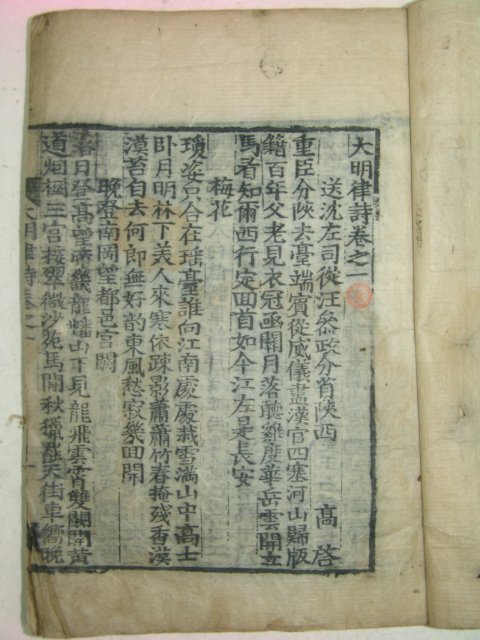 大明律詩卷之一
送沈左司從汪叅政分省陜西 高啓
重臣分陜去臺端賓從威儀盡漢官四塞河山歸版
籍百年父老見衣冠凾關月落聽雞度華岳雲開立
馬看知爾西行定回首如今江左是長安
梅花
瓊姿只合在瑶臺誰向江南處處栽雪滿山中高士
卧月明林下美人來寒依踈影蕭蕭竹春掩殘香漠
漠苔自去何郎無好韵東風愁寂幾回開
晚登南岡望都邑宮闕
日登高望帝畿龍蟠山下見龍飛雲霄雙闕開黄
道烟樹三宮接翠微沙苑馬閒秋獵罷天街車嚮晚
大明律詩卷之一